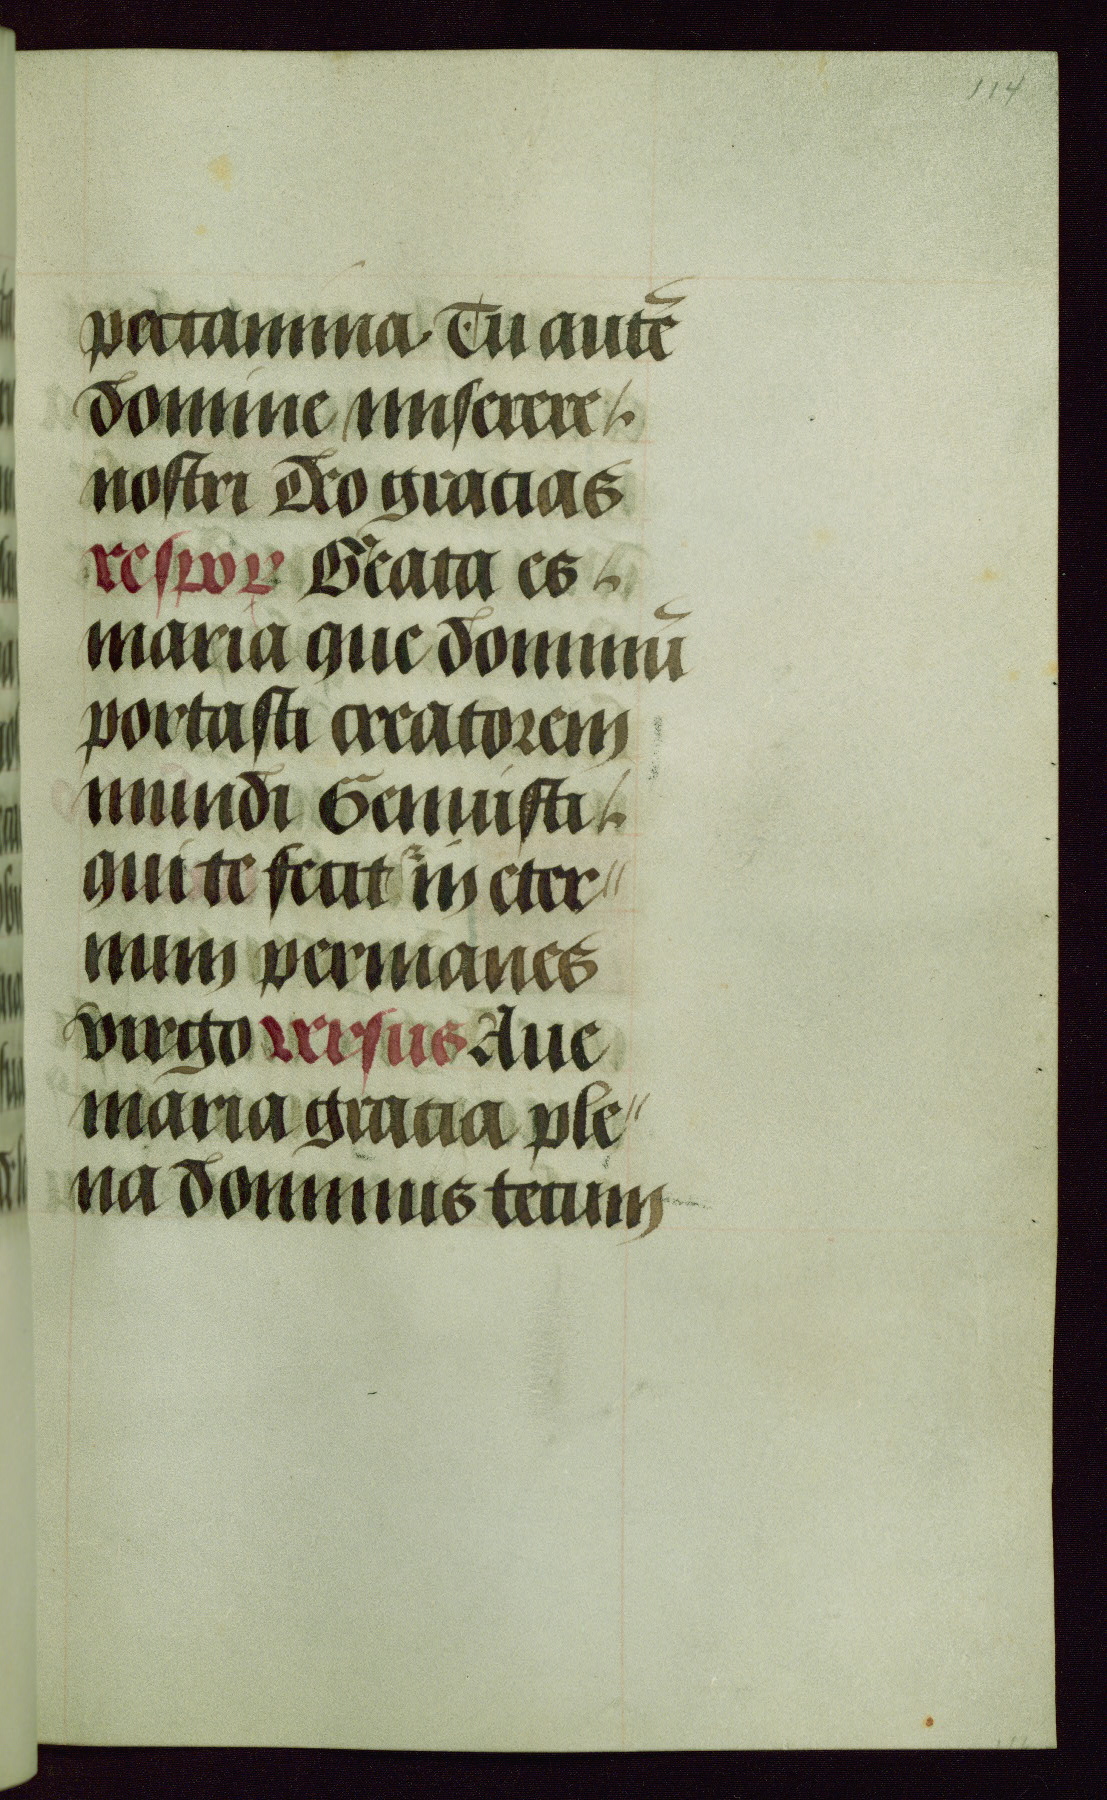 114
peccamina. Tu autē
domine miserere
nostri Deo gracias
respōꝰ Beata es
maria que dominū
portasti creatorem
mundi Genuisti
qui te fecit in eter//
num permanes
virgo versus Aue
maria gracia ple//
na dominus tecum